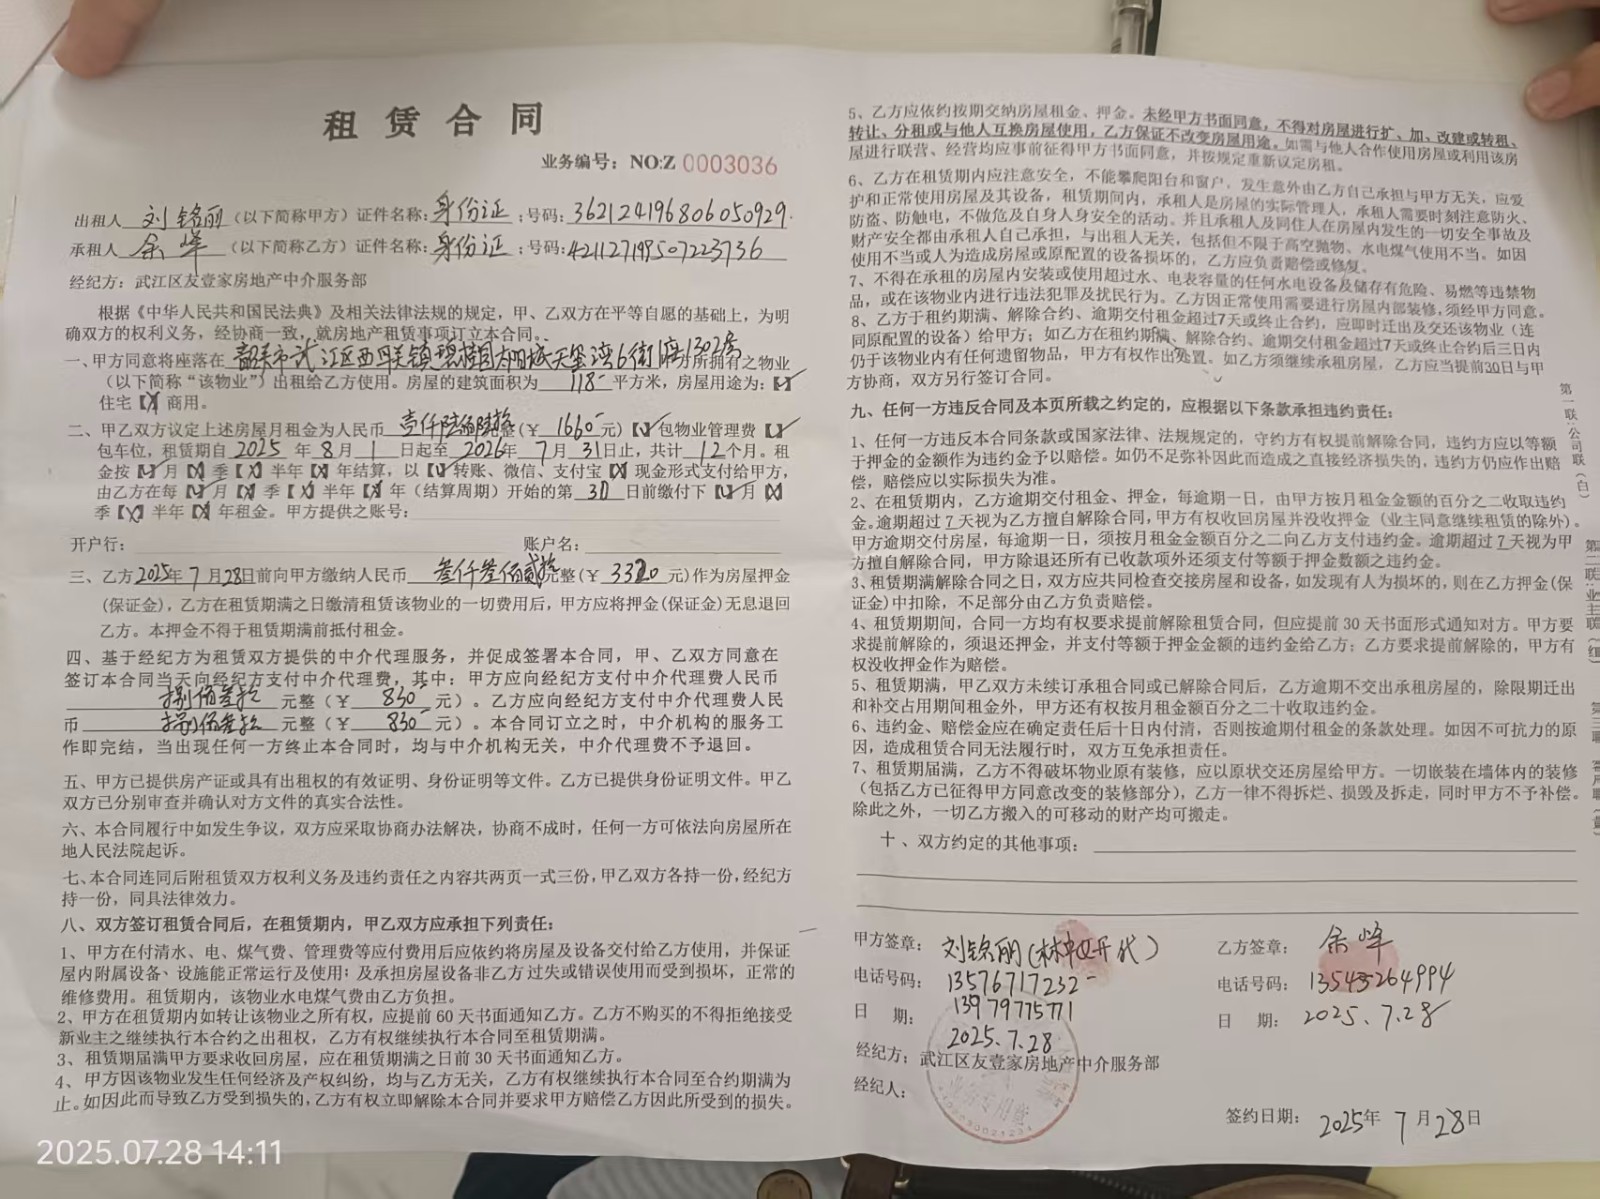 租赁合同
业务编号：NO:Z 0003036
出租人 刘铭丽（以下简称甲方）证件名称：身份证；号码：362124196806050929.
承租人 余峰（以下简称乙方）证件名称：身份证；号码：421127199507223736
经纪方：武江区友壹家房地产中介服务部
根据《中华人民共和国民法典》及相关法律法规的规定，甲、乙双方在平等自愿的基础上，为明
确双方的权利义务，经协商一致，就房地产租赁事项订立本合同。
一、甲方同意将座落在 韶关市武江区西联镇碧桂园太阳城天玺湾6街1座1302房 甲方所拥有之物业
（以下简称“该物业”）出租给乙方使用。房屋的建筑面积为 118 平方米，房屋用途为：【✓】
住宅【X】商用。
二、甲乙双方议定上述房屋月租金为人民币 壹仟陆佰陆拾 元整（￥ 1660 元）【✓】包物业管理费【✓】
包车位，租赁期自 2025 年 8 月 1 日起至 2026年 7 月 31日止，共计 12个月。租
金按【✓】月【X】季【X】半年【X】年结算，以【✓】转账、微信、支付宝【X】现金形式支付给甲方，
由乙方在每【✓】月【X】季【X】半年【X】年（结算周期）开始的第 30 日前缴付下【✓】月【X】
季【X】半年【X】年租金。甲方提供之账号：
开户行： 账户名：
三、乙方2025年 7 月28日前向甲方缴纳人民币 叁仟叁佰贰拾元整（￥ 3320 元）作为房屋押金
（保证金），乙方在租赁期满之日缴清租赁该物业的一切费用后，甲方应将押金（保证金）无息退回
乙方。本押金不得于租赁期满前抵付租金。
四、基于经纪方为租赁双方提供的中介代理服务，并促成签署本合同，甲、乙双方同意在
签订本合同当天向经纪方支付中介代理费，其中：甲方应向经纪方支付中介代理费人民币
捌佰叁拾 元整（￥ 830 元）。乙方应向经纪方支付中介代理费人民
币 捌佰叁拾 元整（￥ 830 元）。本合同订立之时，中介机构的服务工
作即完结，当出现任何一方终止本合同时，均与中介机构无关，中介代理费不予退回。
五、甲方已提供房产证或具有出租权的有效证明、身份证明等文件。乙方已提供身份证明文件。甲乙
双方已分别审查并确认对方文件的真实合法性。
六、本合同履行中如发生争议，双方应采取协商办法解决，协商不成时，任何一方可依法向房屋所在
地人民法院起诉。
七、本合同连同后附租赁双方权利义务及违约责任之内容共两页一式三份，甲乙双方各持一份，经纪方
持一份，同具法律效力。
八、双方签订租赁合同后，在租赁期内，甲乙双方应承担下列责任：
1、甲方在付清水、电、煤气费、管理费等应付费用后应依约将房屋及设备交付给乙方使用，并保证
屋内附属设备、设施能正常运行及使用；及承担房屋设备非乙方过失或错误使用而受到损坏，正常的
维修费用。租赁期内，该物业水电煤气费由乙方负担。
2、甲方在租赁期内如转让该物业之所有权，应提前60天书面通知乙方。乙方不购买的不得拒绝接受
新业主之继续执行本合约之出租权，乙方有权继续执行本合同至租赁期满。
3、租赁期届满甲方要求收回房屋，应在租赁期满之日前30天书面通知乙方。
4、甲方因该物业发生任何经济及产权纠纷，均与乙方无关，乙方有权继续执行本合同至合约期满为
止。如因此而导致乙方受到损失的，乙方有权立即解除本合同并要求甲方赔偿乙方因此所受到的损失。
5、乙方应依约按期交纳房屋租金、押金。未经甲方书面同意，不得对房屋进行扩、加、改建或转租、
转让、分租或与他人互换房屋使用，乙方保证不改变房屋用途。如需与他人合作使用房屋或利用该房
屋进行联营、经营均应事前征得甲方书面同意，并按规定重新议定房租。
6、乙方在租赁期内应注意安全，不能攀爬阳台和窗户，发生意外由乙方自己承担与甲方无关，应爱
护和正常使用房屋及其设备，租赁期间内，承租人是房屋的实际管理人，承租人需要时刻注意防火、
防盗、防触电，不做危及自身人身安全的活动。并且承租人及同住人在房屋内发生的一切安全事故及
财产安全都由承租人自己承担，与出租人无关，包括但不限于高空抛物、水电煤气使用不当。如因
使用不当或人为造成房屋或原配置的设备损坏的，乙方应负责赔偿或修复。
7、不得在承租的房屋内安装或使用超过水、电表容量的任何水电设备及储存有危险、易燃等违禁物
品，或在该物业内进行违法犯罪及扰民行为。乙方因正常使用需要进行房屋内部装修，须经甲方同意。
8、乙方于租约期满、解除合约、逾期交付租金超过7天或终止合约，应即时迁出及交还该物业（连
同原配置的设备）给甲方；如乙方在租约期满、解除合约、逾期交付租金超过7天或终止合约后三日内
仍于该物业内有任何遗留物品，甲方有权作出处置。如乙方须继续承租房屋，乙方应当提前30日与甲
方协商，双方另行签订合同。
九、任何一方违反合同及本页所载之约定的，应根据以下条款承担违约责任：
1、任何一方违反本合同条款或国家法律、法规规定的，守约方有权提前解除合同，违约方应以等额
于押金的金额作为违约金予以赔偿。如仍不足弥补因此而造成之直接经济损失的，违约方仍应作出赔
偿，赔偿应以实际损失为准。
2、在租赁期内，乙方逾期交付租金、押金，每逾期一日，由甲方按月租金金额的百分之二收取违约
金。逾期超过 7 天视为乙方擅自解除合同，甲方有权收回房屋并没收押金（业主同意继续租赁的除外）。
甲方逾期交付房屋，每逾期一日，须按月租金金额百分之二向乙方支付违约金。逾期超过 7 天视为甲
方擅自解除合同，甲方除退还所有已收款项外还须支付等额于押金数额之违约金。
3、租赁期满解除合同之日，双方应共同检查交接房屋和设备，如发现有人为损坏的，则在乙方押金（保
证金）中扣除，不足部分由乙方负责赔偿。
4、租赁期期间，合同一方均有权要求提前解除租赁合同，但应提前 30 天书面形式通知对方。甲方要
求提前解除的，须退还押金，并支付等额于押金金额的违约金给乙方；乙方要求提前解除的，甲方有
权没收押金作为赔偿。
5、租赁期满，甲乙双方未续订承租合同或已解除合同后，乙方逾期不交出承租房屋的，除限期迁出
和补交占用期间租金外，甲方还有权按月租金额百分之二十收取违约金。
6、违约金、赔偿金应在确定责任后十日内付清，否则按逾期付租金的条款处理。如因不可抗力的原
因，造成租赁合同无法履行时，双方互免承担责任。
7、租赁期届满，乙方不得破坏物业原有装修，应以原状交还房屋给甲方。一切嵌装在墙体内的装修
（包括乙方已征得甲方同意改变的装修部分），乙方一律不得拆烂、损毁及拆走，同时甲方不予补偿。
除此之外，一切乙方搬入的可移动的财产均可搬走。
十、双方约定的其他事项：
甲方签章： 刘铭丽(林 开代）
电话号码： 13576717232
13979775771
日 期： 2025.7.28
经纪方：武江区友壹家房地产中介服务部
经纪人：
业务专用章
乙方签章： 余峰
电话号码： 13545264994
日 期： 2025.7.28
签约日期： 2025年 7 月28日
第一联：公司联（白）
第二联：业主联（红）
2025.07.28 14:11